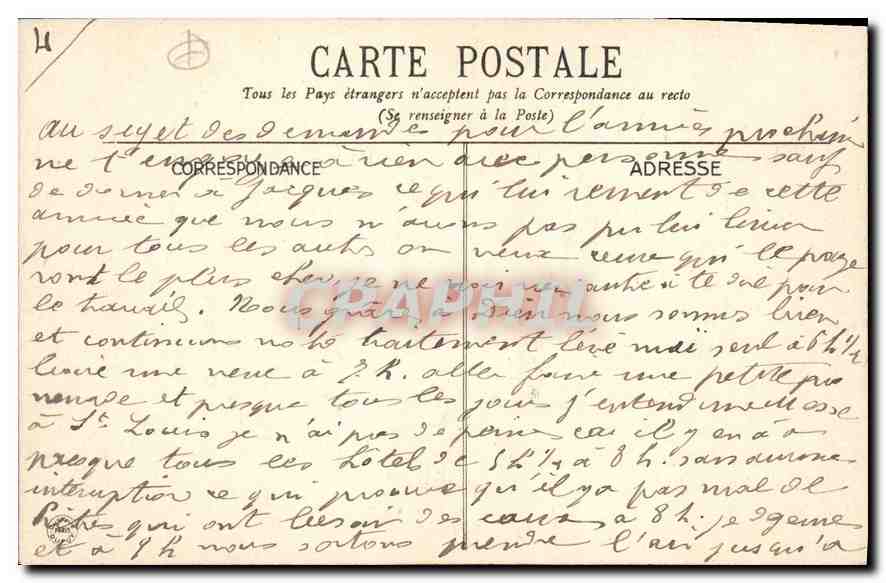 4
CARTE POSTALE
Tous les Pays étrangers n'acceptent pas la Correspondance au recto
(Se renseigner à la Poste)
au sujet des demandes pour l'année prochaine
ne t'engage à rien avec personne sauf
CORRESPONDANCE ADRESSE
de donner à Jacques ce qu'il lui revient de cette
année que nous n'avons pas pu lui livrer
pour tous les autres on veux ceux qu'il paye
ront le plus cher je ne vois rien autre à te dire pour
le travail. Nous grâce à Dieu nous sommes bien
et continuons notre traitement levé moi seul à 5 h 1/2
boire une verre à aller faire une petite pro
menade et presque tous les jours j'entend une messe
à St Louis je n'ai pas de peine car il y en à a
presque tous les hôtels de 5 h 1/2 à 8 h. sans aucune
interuption ce qui prouve qu'il y a pas mal de
Prêtres qui ont besoin des eaux à 8 h. je dejeune
et à 9 h nous sortons prendre l'air jusqu'à
CPAPHIL